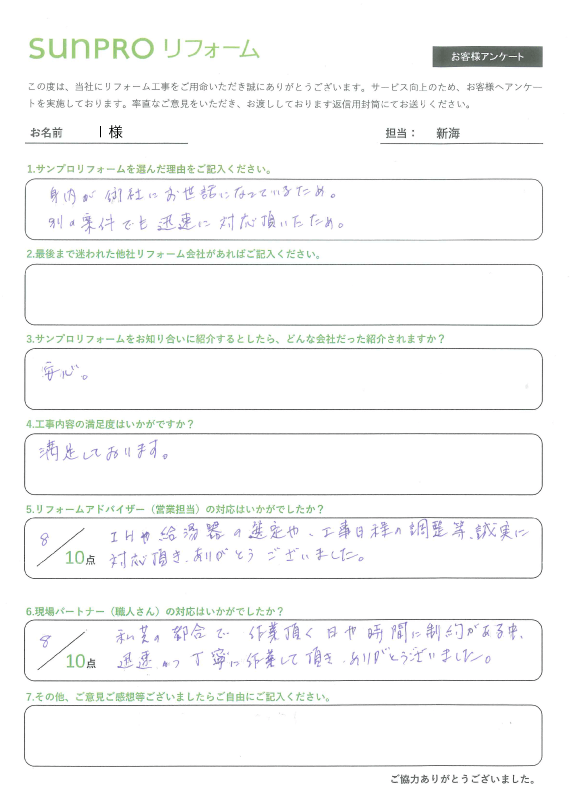 sunPRO リフォーム
お客様アンケート
この度は、当社にリフォーム工事をご用命いただき誠にありがとうございます。サービス向上のため、お客様へアンケー
トを実施しております。率直なご意見をいただき、お渡ししております返信用封筒にてお送りください。
お名前 I 様 担当： 新海
1.サンプロリフォームを選んだ理由をご記入ください。
身内が御社にお世話になっているため。
別の案件でも迅速に対応頂いたため。
2.最後まで迷われた他社リフォーム会社があればご記入ください。
3.サンプロリフォームをお知り合いに紹介するとしたら、どんな会社だった紹介されますか？
安心。
4.工事内容の満足度はいかがですか？
満足しております。
5.リフォームアドバイザー（営業担当）の対応はいかがでしたか？
8／10点
IHや給湯器の選定や、工事日程の調整等、誠実に
対応頂き、ありがとうございました。
6.現場パートナー（職人さん）の対応はいかがでしたか？
8／10点
私共の都合で作業頂く日や時間に制約がある中、
迅速かつ丁寧に作業して頂き、ありがとうございました。
7.その他、ご意見ご感想等ございましたらご自由にご記入ください。
ご協力ありがとうございました。